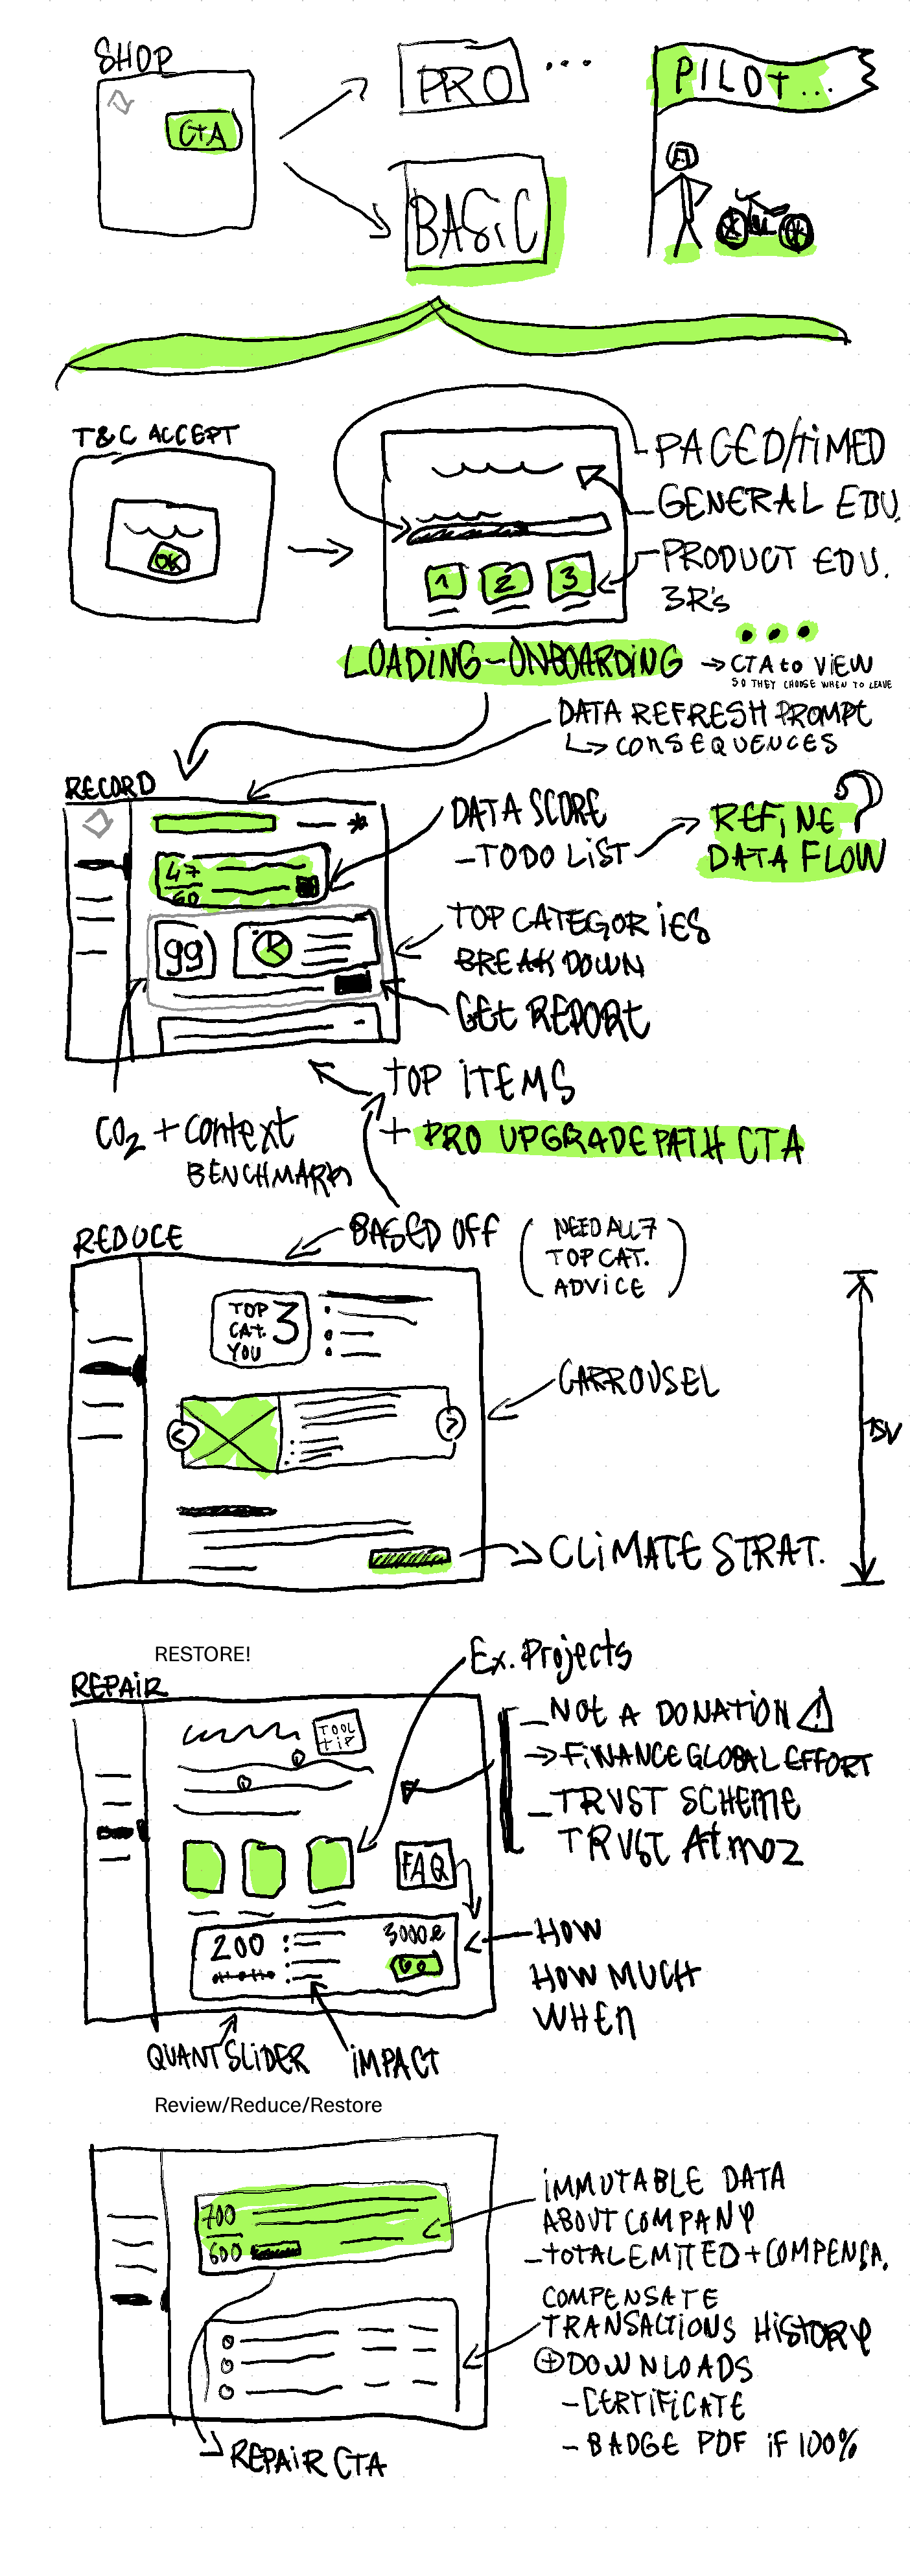 SHOP
CTA
PRO ...
BASIC
PILOT...
T&C ACCEPT
OK
PAGED/TIMED
GENERAL EDU.
PRODUCT EDU.
3R's
1 2 3
LOADING-ONBOARDING
→ CTA to VIEW
SO THEY CHOOSE WHEN TO LEAVE
DATA REFRESH PROMPT
↳ CONSEQUENCES
RECORD
47
60
99
DATA SCORE
- TODO LIST
REFINE ?
DATA FLOW
TOP CATEGORIES
BREAKDOWN
GET REPORT
TOP ITEMS
+ PRO UPGRADE PATH CTA
CO2 + context
BENCHMARK
REDUCE
BASED OFF
(NEED ALL 7
TOP CAT.
ADVICE)
TOP
CAT. 3
YOU
< >
CARROUSEL
CLIMATE STRAT.
RESTORE!
REPAIR
TOOL
TIP
Ex. Projects
- NOT A DONATION ⚠
→ FINANCE GLOBAL EFFORT
- TRUST SCHEME
TRUST Atmoz
FAQ
200
GO
HOW
HOW MUCH
WHEN
QUANT SLIDER
IMPACT
Review/Reduce/Restore
700
600
IMMUTABLE DATA
ABOUT COMPANY
- TOTAL EMITTED + COMPENSA.
COMPENSATE
TRANSACTIONS HISTORY
⊕ DOWNLOADS
- CERTIFICATE
- BADGE PDF IF 100%
REPAIR CTA